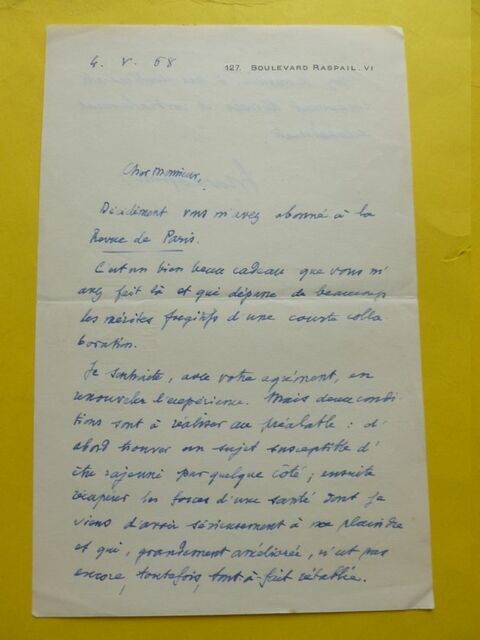 4. V. 68
127. BOULEVARD RASPAIL. VI
Cher Monsieur,
Décidément vous m'avez abonné à la
Revue de Paris.
C'est un bien beau cadeau que vous m'
avez fait là et qui dépasse de beaucoup
les mérites fugitifs d'une courte colla
boration.
Je souhaite, avec votre agrément, en
renouveler l'expérience. Mais deux condi
tions sont à réaliser au préalable : d'
abord trouver un sujet susceptible d'
être rajeuni par quelque côté ; ensuite
récupérer les forces d'une santé dont je
viens d'avoir sérieusement à me plaindre
et qui, grandement améliorée, n'est pas
encore, toutefois, tout-à-fait rétablie.